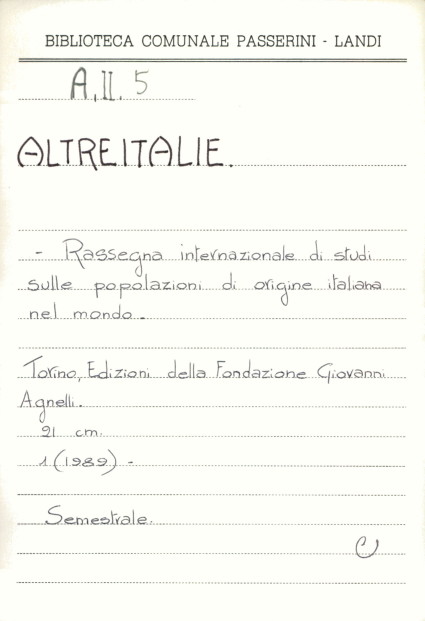 BIBLIOTECA COMUNALE PASSERINI - LANDI
A.II. 5
ALTREITALIE.
- Rassegna internazionale di studi
sulle popolazioni di origine italiana
nel mondo -
Torino, Edizioni della Fondazione Giovanni
Agnelli.
21 cm.
1 (1989) -
Semestrale.